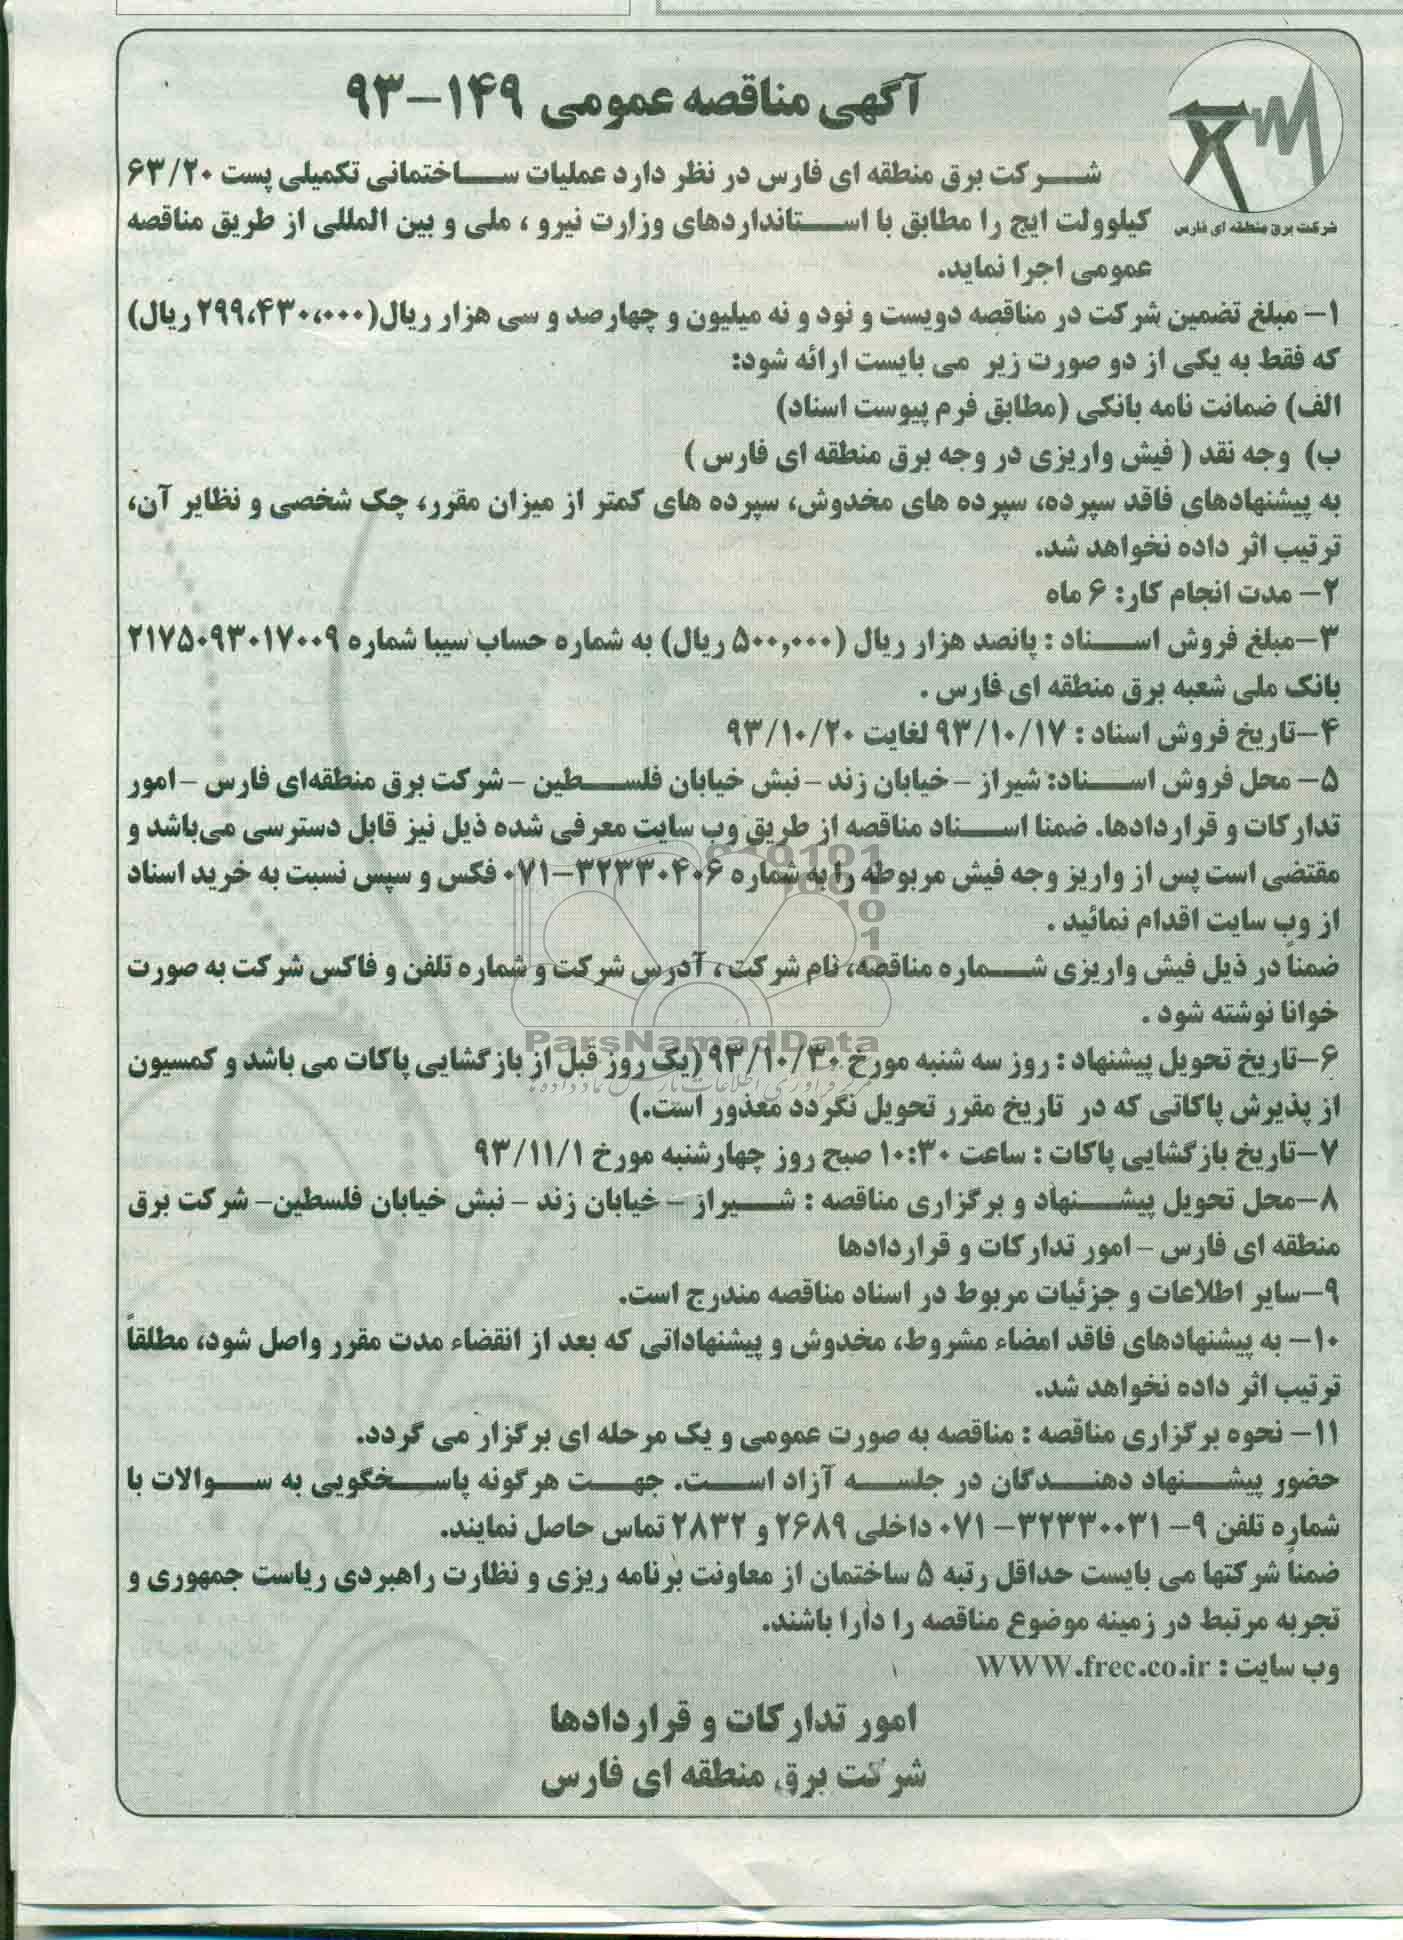 آگهی مناقصه عمومی ۱۴۹-۹۳
شرکت برق منطقه ای فارس
شرکت برق منطقه ای فارس در نظر دارد عملیات ساختمانی تکمیلی پست ۶۳/۲۰
کیلوولت ایج را مطابق با استانداردهای وزارت نیرو ، ملی و بین المللی از طریق مناقصه
عمومی اجرا نماید.
۱- مبلغ تضمین شرکت در مناقصه دویست و نود و نه میلیون و چهارصد و سی هزار ریال(۲۹۹،۴۳۰،۰۰۰ ریال)
که فقط به یکی از دو صورت زیر می بایست ارائه شود:
الف) ضمانت نامه بانکی (مطابق فرم پیوست اسناد)
ب) وجه نقد ( فیش واریزی در وجه برق منطقه ای فارس )
به پیشنهادهای فاقد سپرده، سپرده های مخدوش، سپرده های کمتر از میزان مقرر، چک شخصی و نظایر آن،
ترتیب اثر داده نخواهد شد.
۲- مدت انجام کار: ۶ ماه
۳-مبلغ فروش اسناد : پانصد هزار ریال (۵۰۰,۰۰۰ ریال) به شماره حساب سیبا شماره ۲۱۷۵۰۹۳۰۱۷۰۰۹
بانک ملی شعبه برق منطقه ای فارس .
۴-تاریخ فروش اسناد : ۹۳/۱۰/۱۷ لغایت ۹۳/۱۰/۲۰
۵- محل فروش اسناد: شیراز - خیابان زند - نبش خیابان فلسطین - شرکت برق منطقه‌ای فارس - امور
تدارکات و قراردادها. ضمنا اسناد مناقصه از طریق وب سایت معرفی شده ذیل نیز قابل دسترسی می‌باشد و
مقتضی است پس از واریز وجه فیش مربوطه را به شماره ۳۲۳۳۰۴۰۶-۰۷۱ فکس و سپس نسبت به خرید اسناد
از وب سایت اقدام نمائید .
ضمناً در ذیل فیش واریزی شماره مناقصه، نام شرکت ، آدرس شرکت و شماره تلفن و فاکس شرکت به صورت
خوانا نوشته شود .
ParsNamadData
۶-تاریخ تحویل پیشنهاد : روز سه شنبه مورخ ۹۳/۱۰/۳۰ (یک روز قبل از بازگشایی پاکات می باشد و کمسیون
از پذیرش پاکاتی که در تاریخ مقرر تحویل نگردد معذور است.)
۷-تاریخ بازگشایی پاکات : ساعت ۱۰:۳۰ صبح روز چهارشنبه مورخ ۹۳/۱۱/۱
۸-محل تحویل پیشنهاد و برگزاری مناقصه : شیراز - خیابان زند - نبش خیابان فلسطین- شرکت برق
منطقه ای فارس - امور تدارکات و قراردادها
۹-سایر اطلاعات و جزئیات مربوط در اسناد مناقصه مندرج است.
۱۰- به پیشنهادهای فاقد امضاء مشروط، مخدوش و پیشنهاداتی که بعد از انقضاء مدت مقرر واصل شود، مطلقاً
ترتیب اثر داده نخواهد شد.
۱۱- نحوه برگزاری مناقصه : مناقصه به صورت عمومی و یک مرحله ای برگزار می گردد.
حضور پیشنهاد دهندگان در جلسه آزاد است. جهت هرگونه پاسخگویی به سوالات با
شماره تلفن ۹- ۳۲۳۳۰۰۳۱- ۰۷۱ داخلی ۲۶۸۹ و ۲۸۳۲ تماس حاصل نمایند.
ضمناً شرکتها می بایست حداقل رتبه ۵ ساختمان از معاونت برنامه ریزی و نظارت راهبردی ریاست جمهوری و
تجربه مرتبط در زمینه موضوع مناقصه را دارا باشند.
وب سایت : WWW.frec.co.ir
امور تدارکات و قراردادها
شرکت برق منطقه ای فارس